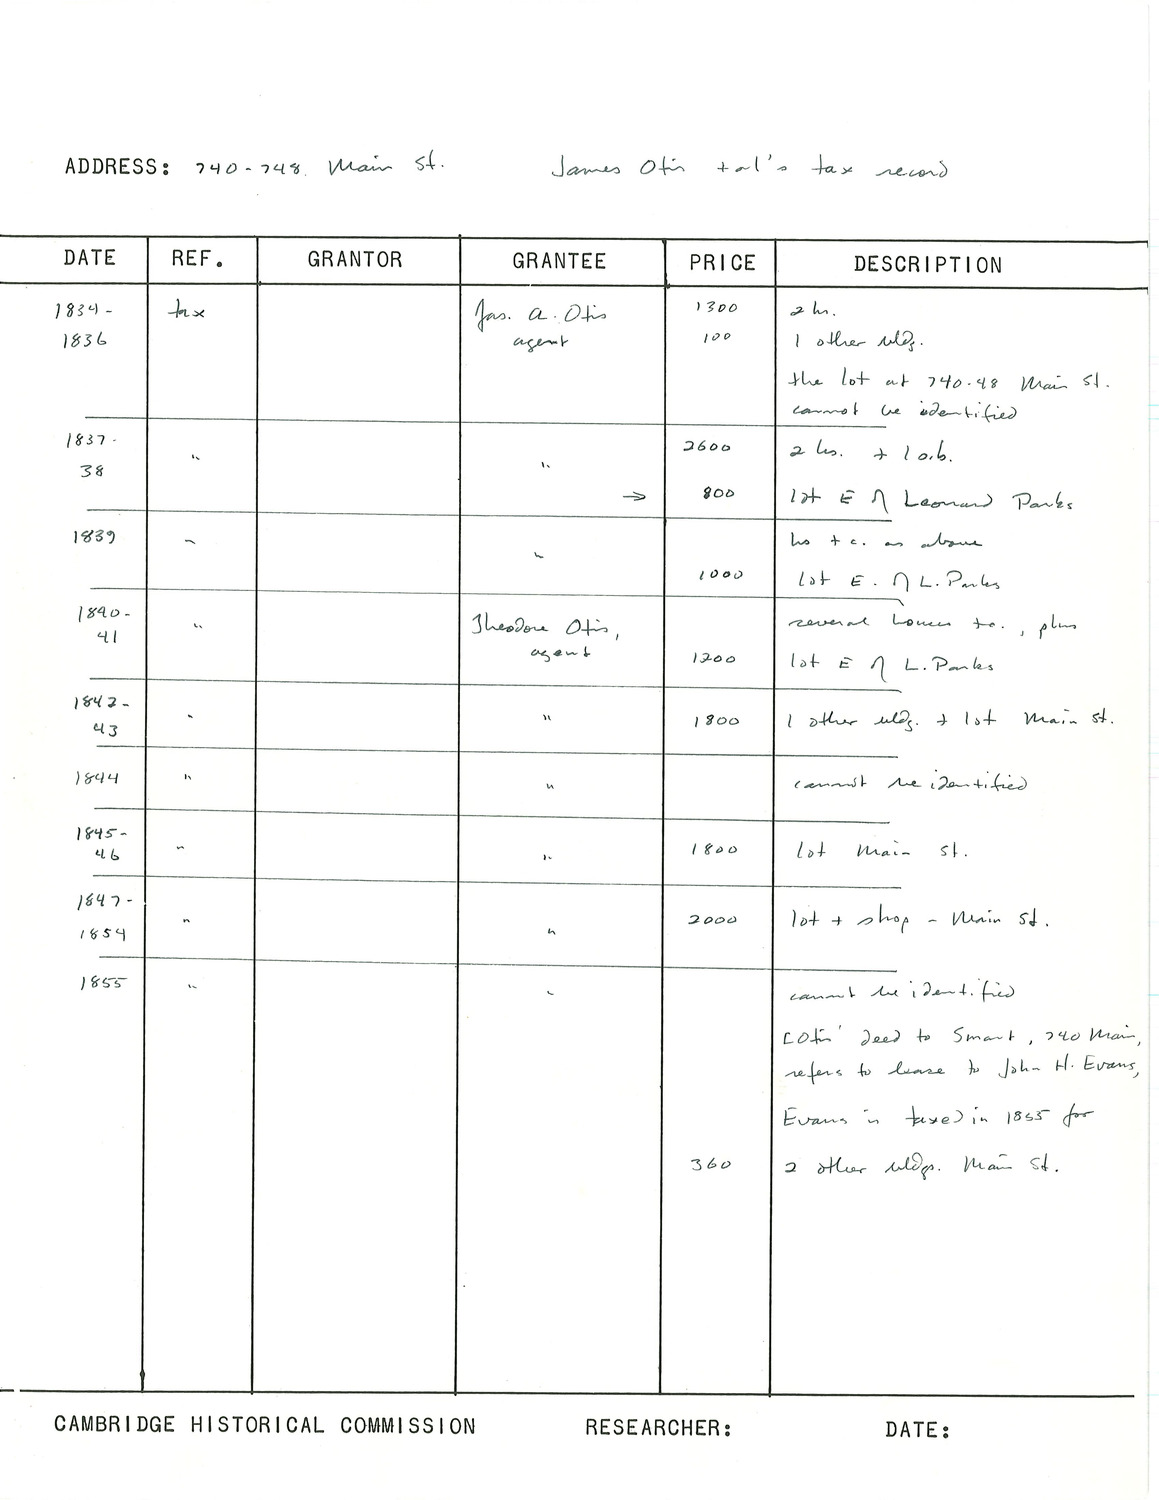 ADDRESS: 740-748 Main St. James Otis et al's tax record
DATE REF. GRANTOR GRANTEE PRICE DESCRIPTION
1834- tax Jas. A. Otis 1300 2 hs.
1836 agent 100 1 other bldg.
the lot at 740-48 Main St.
cannot be identified
1837- " " 2600 2 hs. + 1 o.b.
38 → 800 lot E of Leonard Parks
1839 " " hs + c. as above
1000 lot E. of L. Parks
1840- " Theodore Otis, several houses &c., plus
41 agent 1200 lot E of L. Parks
1842- " " 1800 1 other bldg. + lot Main St.
43
1844 " " cannot be identified
1845- " " 1800 lot Main St.
46
1847- " " 2000 lot + shop - Main St.
1854
1855 " " cannot be identified
[Otis' deed to Smart, 740 Main,
refers to lease to John H. Evans,
Evans is taxed in 1855 for
360 2 other bldgs. Main St.
CAMBRIDGE HISTORICAL COMMISSION RESEARCHER: DATE: